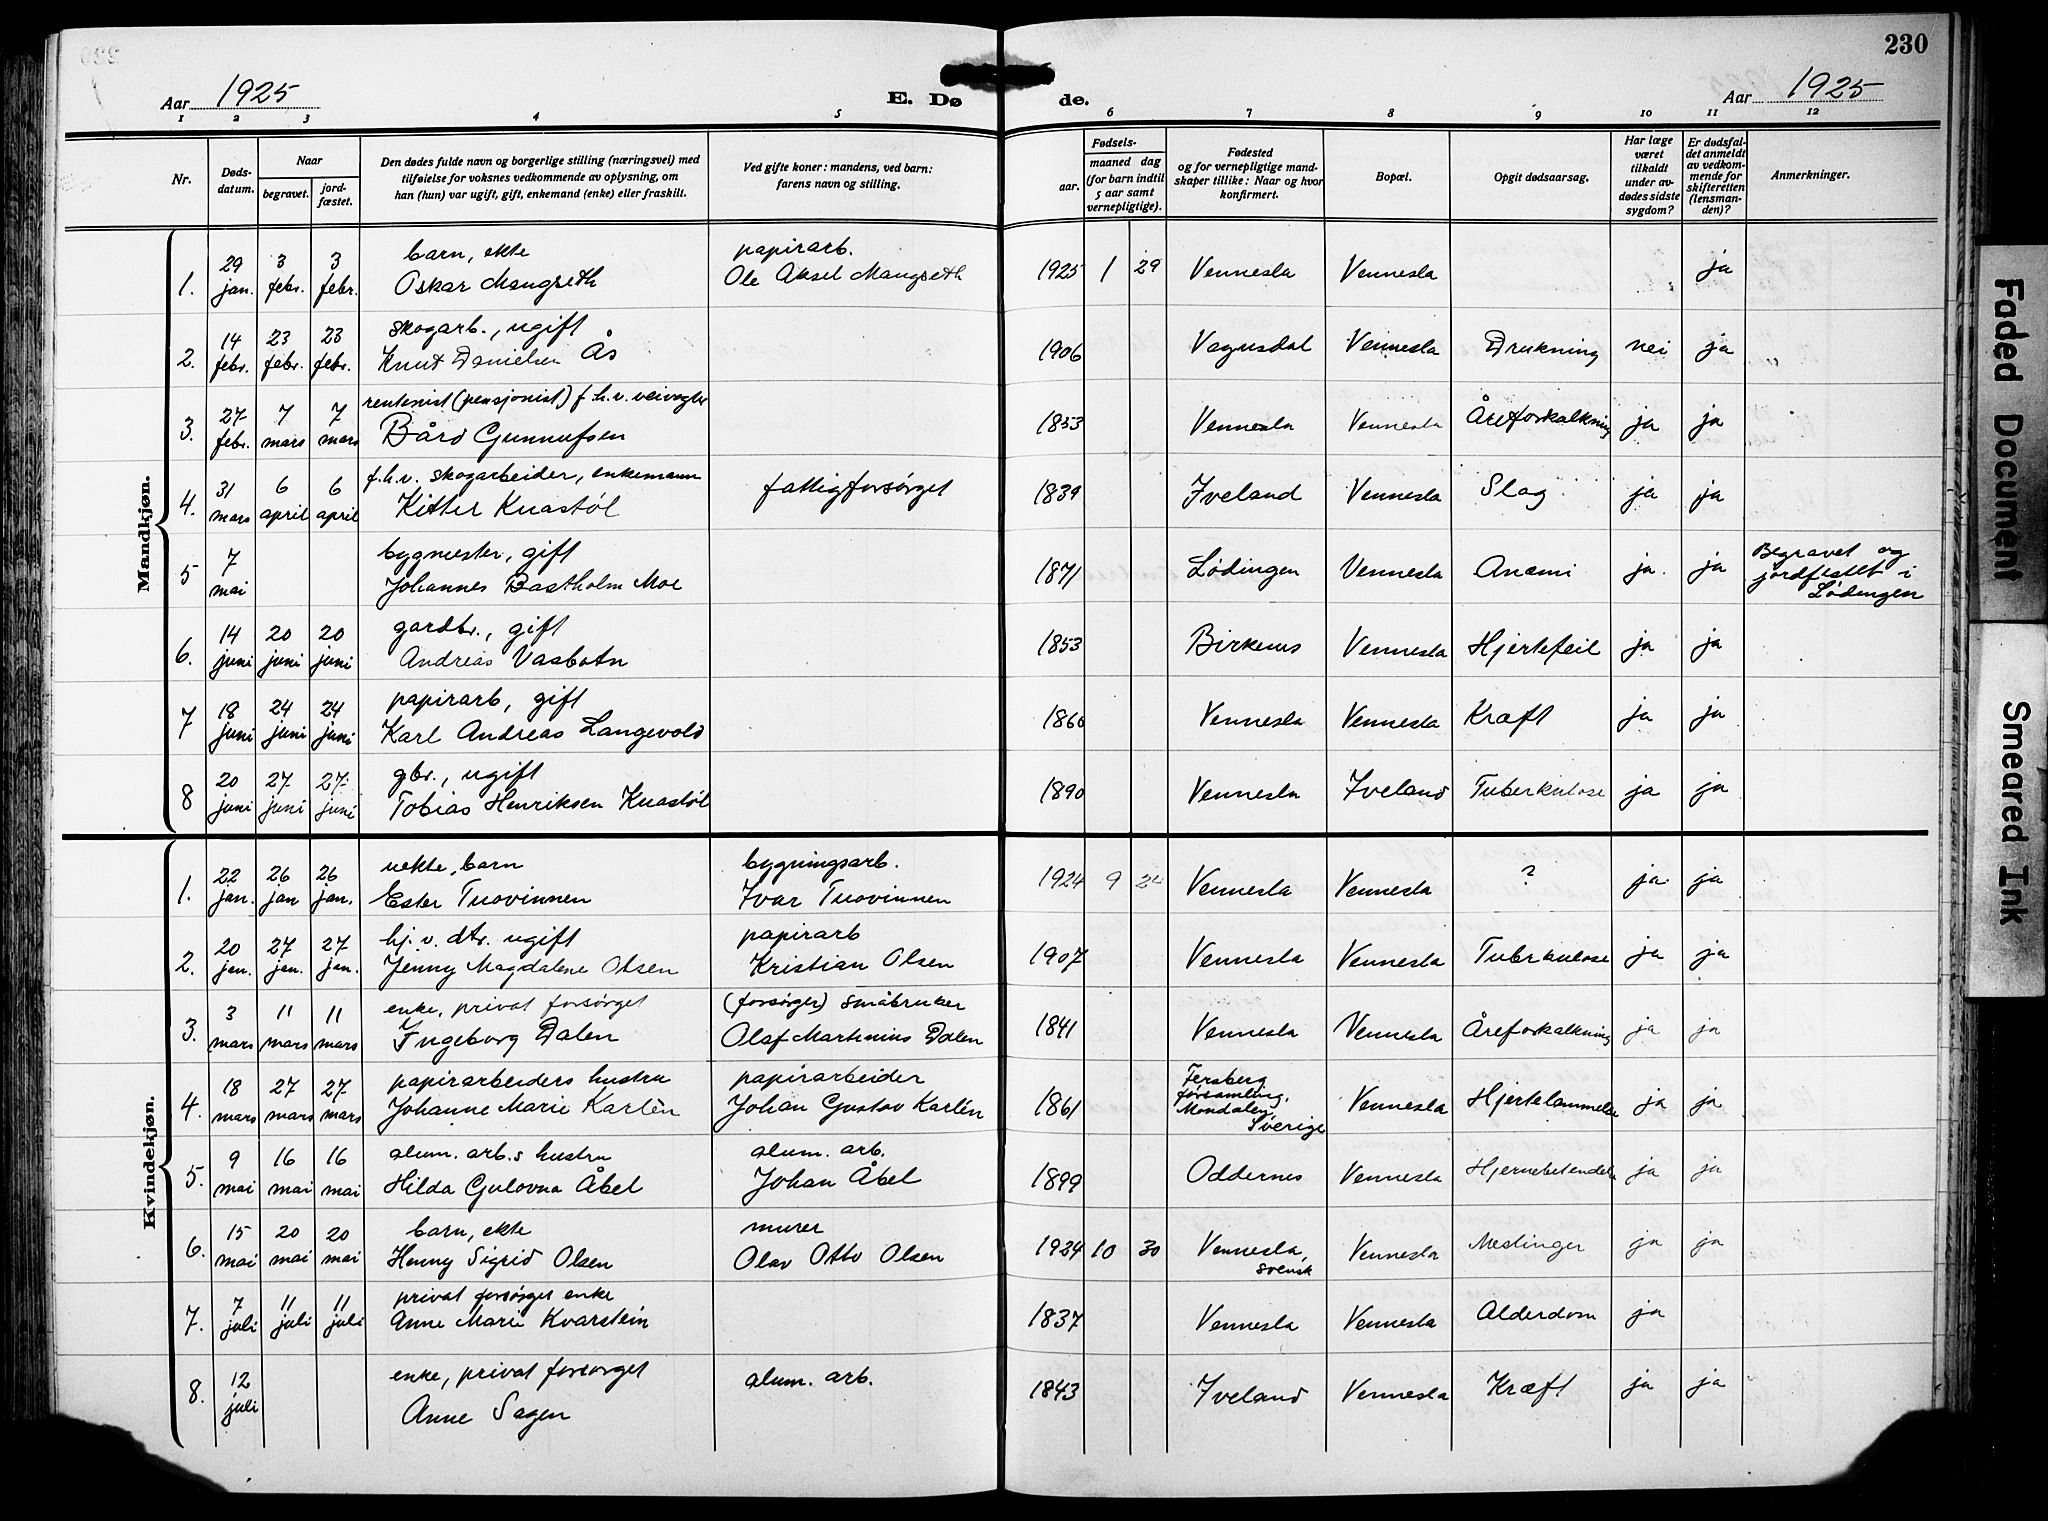 230
Aar 1925
E. Dø
de.
Aar 1925
1 2 3 4 5 6 7 8 9 10 11 12
Nr.
Døds-
datum.
Naar
begravet.
jord-
fæstet.
Den dødes fulde navn og borgerlige stilling (næringsvei) med
tilføielse for voksnes vedkommende av oplysning, om
han (hun) var ugift, gift, enkemand (enke) eller fraskilt.
Ved gifte koner: mandens, ved barn:
farens navn og stilling.
Fødsels-
aar.
maaned dag
(for barn indtil
5 aar samt
vernepligtige).
Fødested
og for vernepligtige mand-
skaper tillike: Naar og hvor
konfirmert.
Bopæl.
Opgit dødsaarsag.
Har læge
været
tilkaldt
under av-
dødes sidste
sygdom?
Er dødsfal-
det anmeldt
av vedkom-
mende for
skifteretten
(lensman-
den)?
Anmerkninger.
Mandkjøn.
29 3 3 barn, ekte papirarb.
1. jan. febr. febr. Oskar Mangseth Ole Aksel Mangseth 1925 1 29 Vennesla Vennesla ja
14 23 23 skogarb., ugift
2. febr. febr. febr. Knut Danielsen Ås 1906 Vegusdal Vennesla Drukning nei ja
27 7 7 rentenist (pensjonist) f.h.v. veivogter
3. febr. mars mars Bård Gunnufsen 1853 Vennesla Vennesla Åreforkalkning ja ja
31 6 6 f.h.v. skogarbeider, enkemann
4. mars april april Kitter Knastøl fattigforsørget 1839 Iveland Vennesla Slag ja ja
7 bygmester, gift
5 mai Johannes Bastholm Moe 1871 Lødingen Vennesla Anæmi ja. ja
Begravet og
jordfestet i
Lødingen
14 20 20 gardbr., gift
6. juni juni juni Andreas Vasbotn 1853 Birkenes Vennesla Hjertefeil ja ja
18 24 24 papirarb, gift
7 juni juni juni Karl Andreas Langevold 1860 Vennesla Vennesla Kræft ja ja
20 27 27 gbr., ugift
8 juni juni juni Tobias Henriksen Knastøl 1890 Vennesla Iveland Tuberkulose ja ja
Kvindekjøn.
22 26 26 uekte, barn bygningsarb.
1. jan. jan jan. Ester Tuovinnen Ivar Tuovinnen 1924 9 Vennesla Vennesla ? ja ja
20 27 27 hj. v. dtr. ugift papirarb
2. jan. jan. jan. Jenny Magdalene Olsen Kristian Olsen 1907 Vennesla Vennesla Tuberkulose ja ja
3 11 11 enke, privat forsørget (forsørger) småbruker
3. mars mars mars Ingeborg Dalen Olaf Martinius Dalen 1841 Vennesla Vennesla Åreforkalkning ja ja
18 27 27 papirarbeiders hustru papirarbeider
4. mars mars mars Johanne Marie Karlén Johan Gustav Karlén 1861
Fersberg
församling,
Mondalen,
Sverige
Vennesla Hjertelammelse ja ja
9 16 16 alum. arb.s hustru alum. arb.
5. mai mai mai Hilda Gulovna Åbel Johan Åbel 1899 Oddernes Vennesla Hjernebetendelse ja ja
15 20 20 barn, ekte murer
6. mai mai mai Henny Sigrid Olsen Olav Otto Olsen 1924 10 30 Vennesla, svensk Vennesla Meslinger ja ja
7 11 11 privat forsørget enke
7. juli juli juli Anne Marie Kvarstein 1837 Vennesla Vennesla Alderdom ja
12 enke, privat forsørget alum. arb.
8. juli Anne Sagen 1843 Iveland Vennesla Kræft ja ja
Faded Document
Smeared Ink